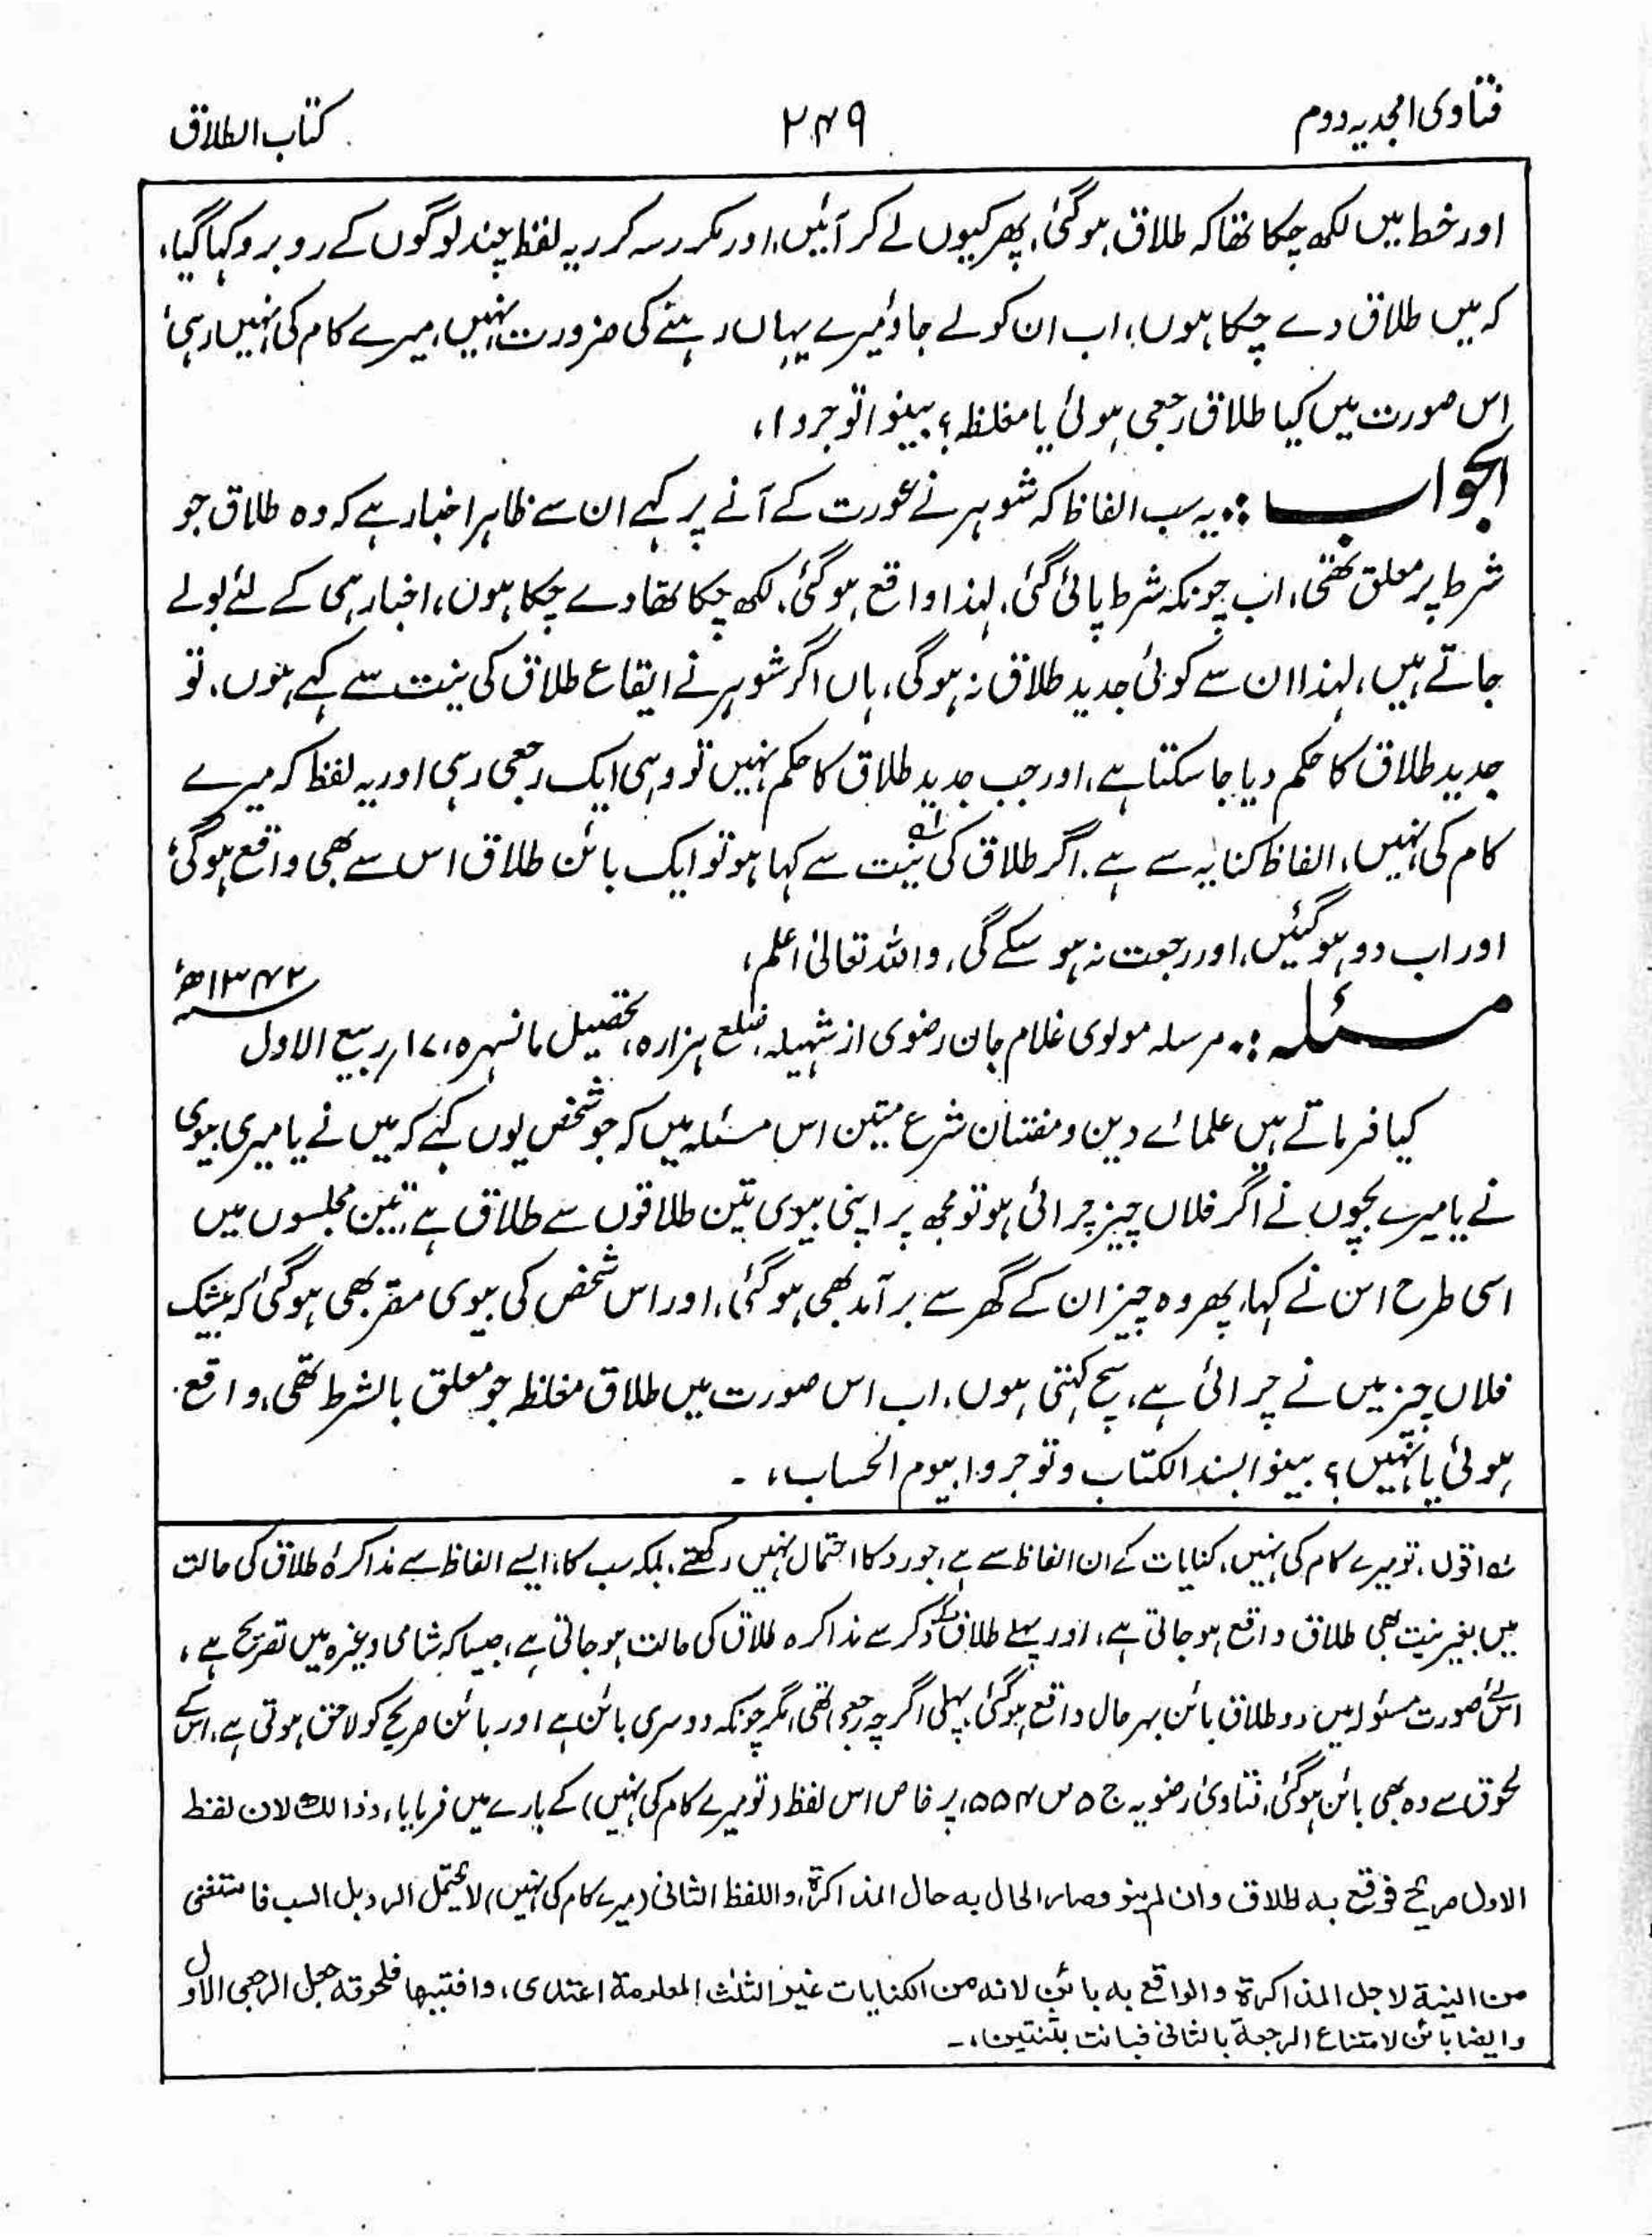 فتاوی امجدیہ دوم
۲۴۹
کتاب الطلاق
اور خط میں لکھ چکا تھا کہ طلاق ہوگئی، پھر کیوں لے کر آئیں، اور مکرر سہ کرر یہ لفظ چند لوگوں کے روبرو کہا گیا،
کہ میں طلاق دے چکا ہوں، اب ان کو لے جاؤ میرے یہاں رہنے کی ضرورت نہیں، میرے کام کی نہیں رہی،
اس صورت میں کیا طلاق رجعی ہوئی یا مغلظہ؟ بینوا توجروا،
الجواب :۔ یہ سب الفاظ کہ شوہر نے عورت کے آنے پر کہے ان سے ظاہر اخبار ہے کہ وہ طلاق جو
شرط پر معلق تھی، اب چونکہ شرط پائی گئی، لہذا واقع ہوگئی، لکھ چکا تھا دے چکا ہوں، اخبار ہی کے لئے بولے
جاتے ہیں، لہذا ان سے کوئی جدید طلاق نہ ہوگی، ہاں اگر شوہر نے ایقاع طلاق کی نیت سے کہے ہوں، تو
جدید طلاق کا حکم دیا جا سکتا ہے، اور جب جدید طلاق کا حکم نہیں تو وہی ایک رجعی رہی اور یہ لفظ کہ میرے
کام کی نہیں، الفاظ کنایہ سے ہے، اگر طلاق کی نیت سے کہا ہو تو ایک بائن طلاق اس سے بھی واقع ہوگی،
اور اب دو ہوگئیں، اور رجعت نہ ہو سکے گی، واللہ تعالیٰ اعلم،
مسئلہ :۔ مرسلہ مولوی غلام جان رضوی از شہیلہ، ضلع ہزارہ، تحصیل مانسہرہ، ۱۷؍ ربیع الاول ۱۳۴۲ھ
کیا فرماتے ہیں علمائے دین و مفتیان شرع متین اس مسئلہ میں کہ جو شخص یوں کہے کہ میں نے یا میری بیوی
نے یا میرے بچوں نے اگر فلاں چیز چرائی ہو تو مجھ پر اپنی بیوی تین طلاقوں سے طلاق ہے، تین مجلسوں میں
اسی طرح اس نے کہا، پھر وہ چیز ان کے گھر سے برآمد بھی ہوگئی، اور اس شخص کی بیوی مقر بھی ہوگئی کہ بیشک
فلاں چیز میں نے چرائی ہے، سچ کہتی ہوں، اب اس صورت میں طلاق مغلظہ جو معلق بالشرط تھی، واقع
ہوئی یا نہیں؟ بینوا بسند الکتاب وتوجروا بیوم الحساب، ۔
اقول، تو میرے کام کی نہیں، کنایات کے ان الفاظ سے ہے، جو رد کا احتمال نہیں رکھتے، بلکہ سب کا، ایسے الفاظ سے مذاکرۂ طلاق کی حالت
میں بغیر نیت بھی طلاق واقع ہو جاتی ہے، اور پہلے طلاق کے ذکر سے مذاکرہ طلاق کی حالت ہو جاتی ہے، جیسا کہ شامی وغیرہ میں تصریح ہے،
اس لئے صورت مسئولہ میں دو طلاق بائن بہر حال واقع ہوگئی، پہلی اگرچہ رجعی تھی، مگر چونکہ دوسری بائن ہے اور بائن صریح کو لاحق ہوتی ہے، اس کے
لحوق سے وہ بھی بائن ہوگئی، فتاویٰ رضویہ ج ۵ ص ۵۵۴، پر خاص اس لفظ (تو میرے کام کی نہیں) کے بارے میں فرمایا، وذالک لان لفظ
الاول صریح فوقع بہ طلاق وان لم ینو وصار الحال بہ حال المذاکرۃ، واللفظ الثانی (میرے کام کی نہیں) لا یحتمل الرد بل السب فاستغنی
من النیۃ لاجل المذاکرۃ والواقع بہ بائن لانہ من الکنایات غیر الثلث المعلومۃ اعتدی، واختیہا فلحوقہ جعل الرجعی الاول
وایضا بائن لامتناع الرجعۃ بالثانی فبانت بثنتین، ۔